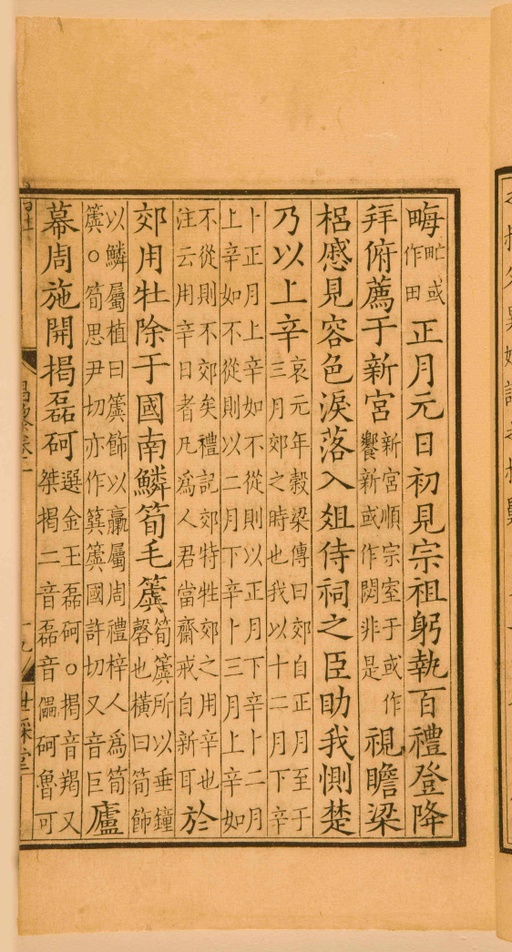 畮甿或作田正月元日初見宗祖躬執百禮登降
拜俯薦于新宮新宮順宗室于或作饗新或作閟非是視瞻梁
梠慼見容色淚落入俎侍祠之臣助我惻楚
乃以上辛哀元年榖梁傳曰郊自正月至于三月郊之時也我以十二月下辛
卜正月上辛如不從則以正月下辛卜二月上辛如不從則以二月下辛卜三月上辛如
不從則不郊矣禮記郊特牲郊之用辛也注云用辛日者凡爲人君當齋戒自新耳於
郊用牡除于國南鱗筍毛簴筍簴所以垂鐘磬也橫曰筍飾
以鱗屬植曰簴飾以臝屬周禮梓人爲筍簴○筍思尹切亦作簨簴國許切又音巨廬
幕周施開揭磊砢選金玉磊砢○揭音羯又桀揭二音磊音儡砢魯可